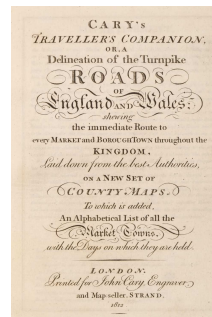 CARY'S
TRAVELLER'S COMPANION,
OR, A
Delineation of the Turnpike
ROADS
OF
England AND Wales;
shewing
the immediate Route to
every MARKET and BOROUGH TOWN throughout the
KINGDOM,
Laid down from the best Authorities,
ON A NEW SET OF
COUNTY MAPS.
To which is added,
An Alphabetical List of all the
Market Towns,
with the Days on which they are held.
LONDON:
Printed for John Cary, Engraver
and Map-seller, STRAND.
1812